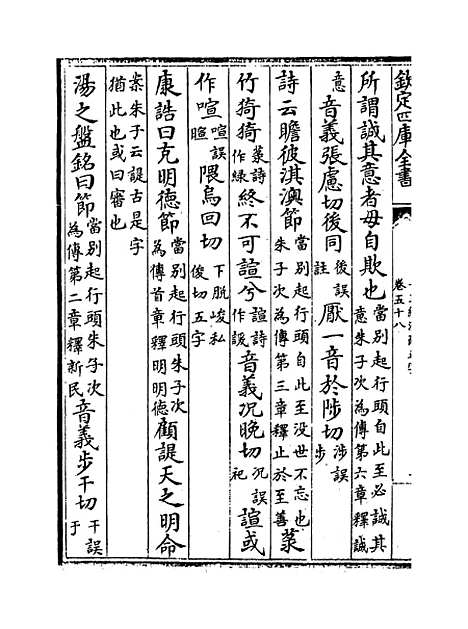 欽定四庫全書
卷五十八
所謂誠其意者毋自欺也當别起行頭自此至必誠其意朱子次為傳第六章釋誠
意音義張慮切後同後誤註厭一音於陟切涉誤步
詩云瞻彼淇澳節當别起行頭自此至没世不忘也朱子次為傳第三章釋止於至善菉
竹猗猗菉詩作緑終不可諠兮諠詩作諼音義况晚切况誤祀諠或
作喧喧誤暄隈烏回切下脱峻私俊切五字
康誥曰克明德節當别起行頭朱子次為傳首章釋明明德顧諟天之明命
案朱子云諟古是字
猶此也或曰審也
湯之盤銘曰節當别起行頭朱子次為傳第二章釋新民音義步干切干誤于